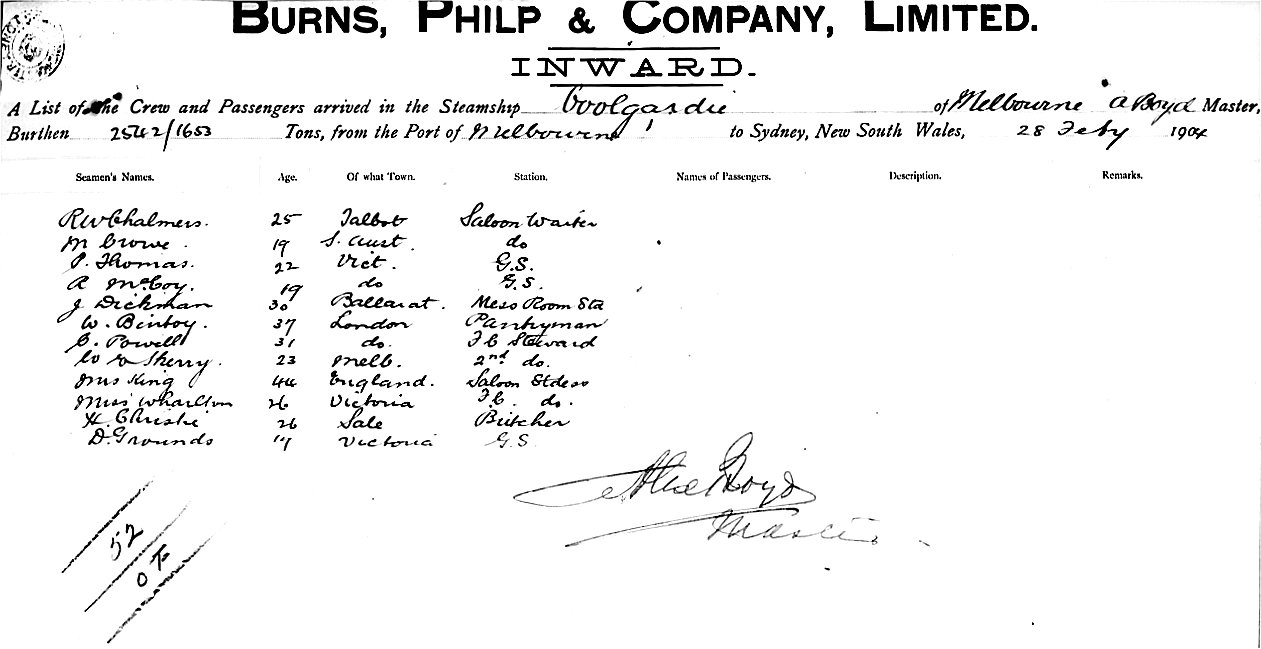 BURNS, PHILP & COMPANY, LIMITED.
INWARD.
A List of the Crew and Passengers arrived in the Steamship Coolgardie of Melbourne A Boyd Master,
Burthen 2542/1653 Tons, from the Port of Melbourne to Sydney, New South Wales, 28 Feby 1904
Seamen's Names. Age. Of what Town. Station. Names of Passengers. Description. Remarks.
R W Chalmers. 25 Talbot Saloon Waiter
M Crowe. 19 S. Aust. do
P. Thomas. 22 Vict. G.S.
A McCoy. 19 do G.S.
J Dickman 30 Ballarat. Mess Room Std
W. Bintoy. 37 London Pantryman
C. Powell 31 do. F C Steward
Sherry. 23 Melb. 2nd do.
Mrs King 44 England. Saloon Stdess
Miss Wharlton 26 Victoria F.C. do.
H. Christie 26 Sale Butcher
D. Grounds 19 Victoria G.S.
Alex Boyd
Master.
52